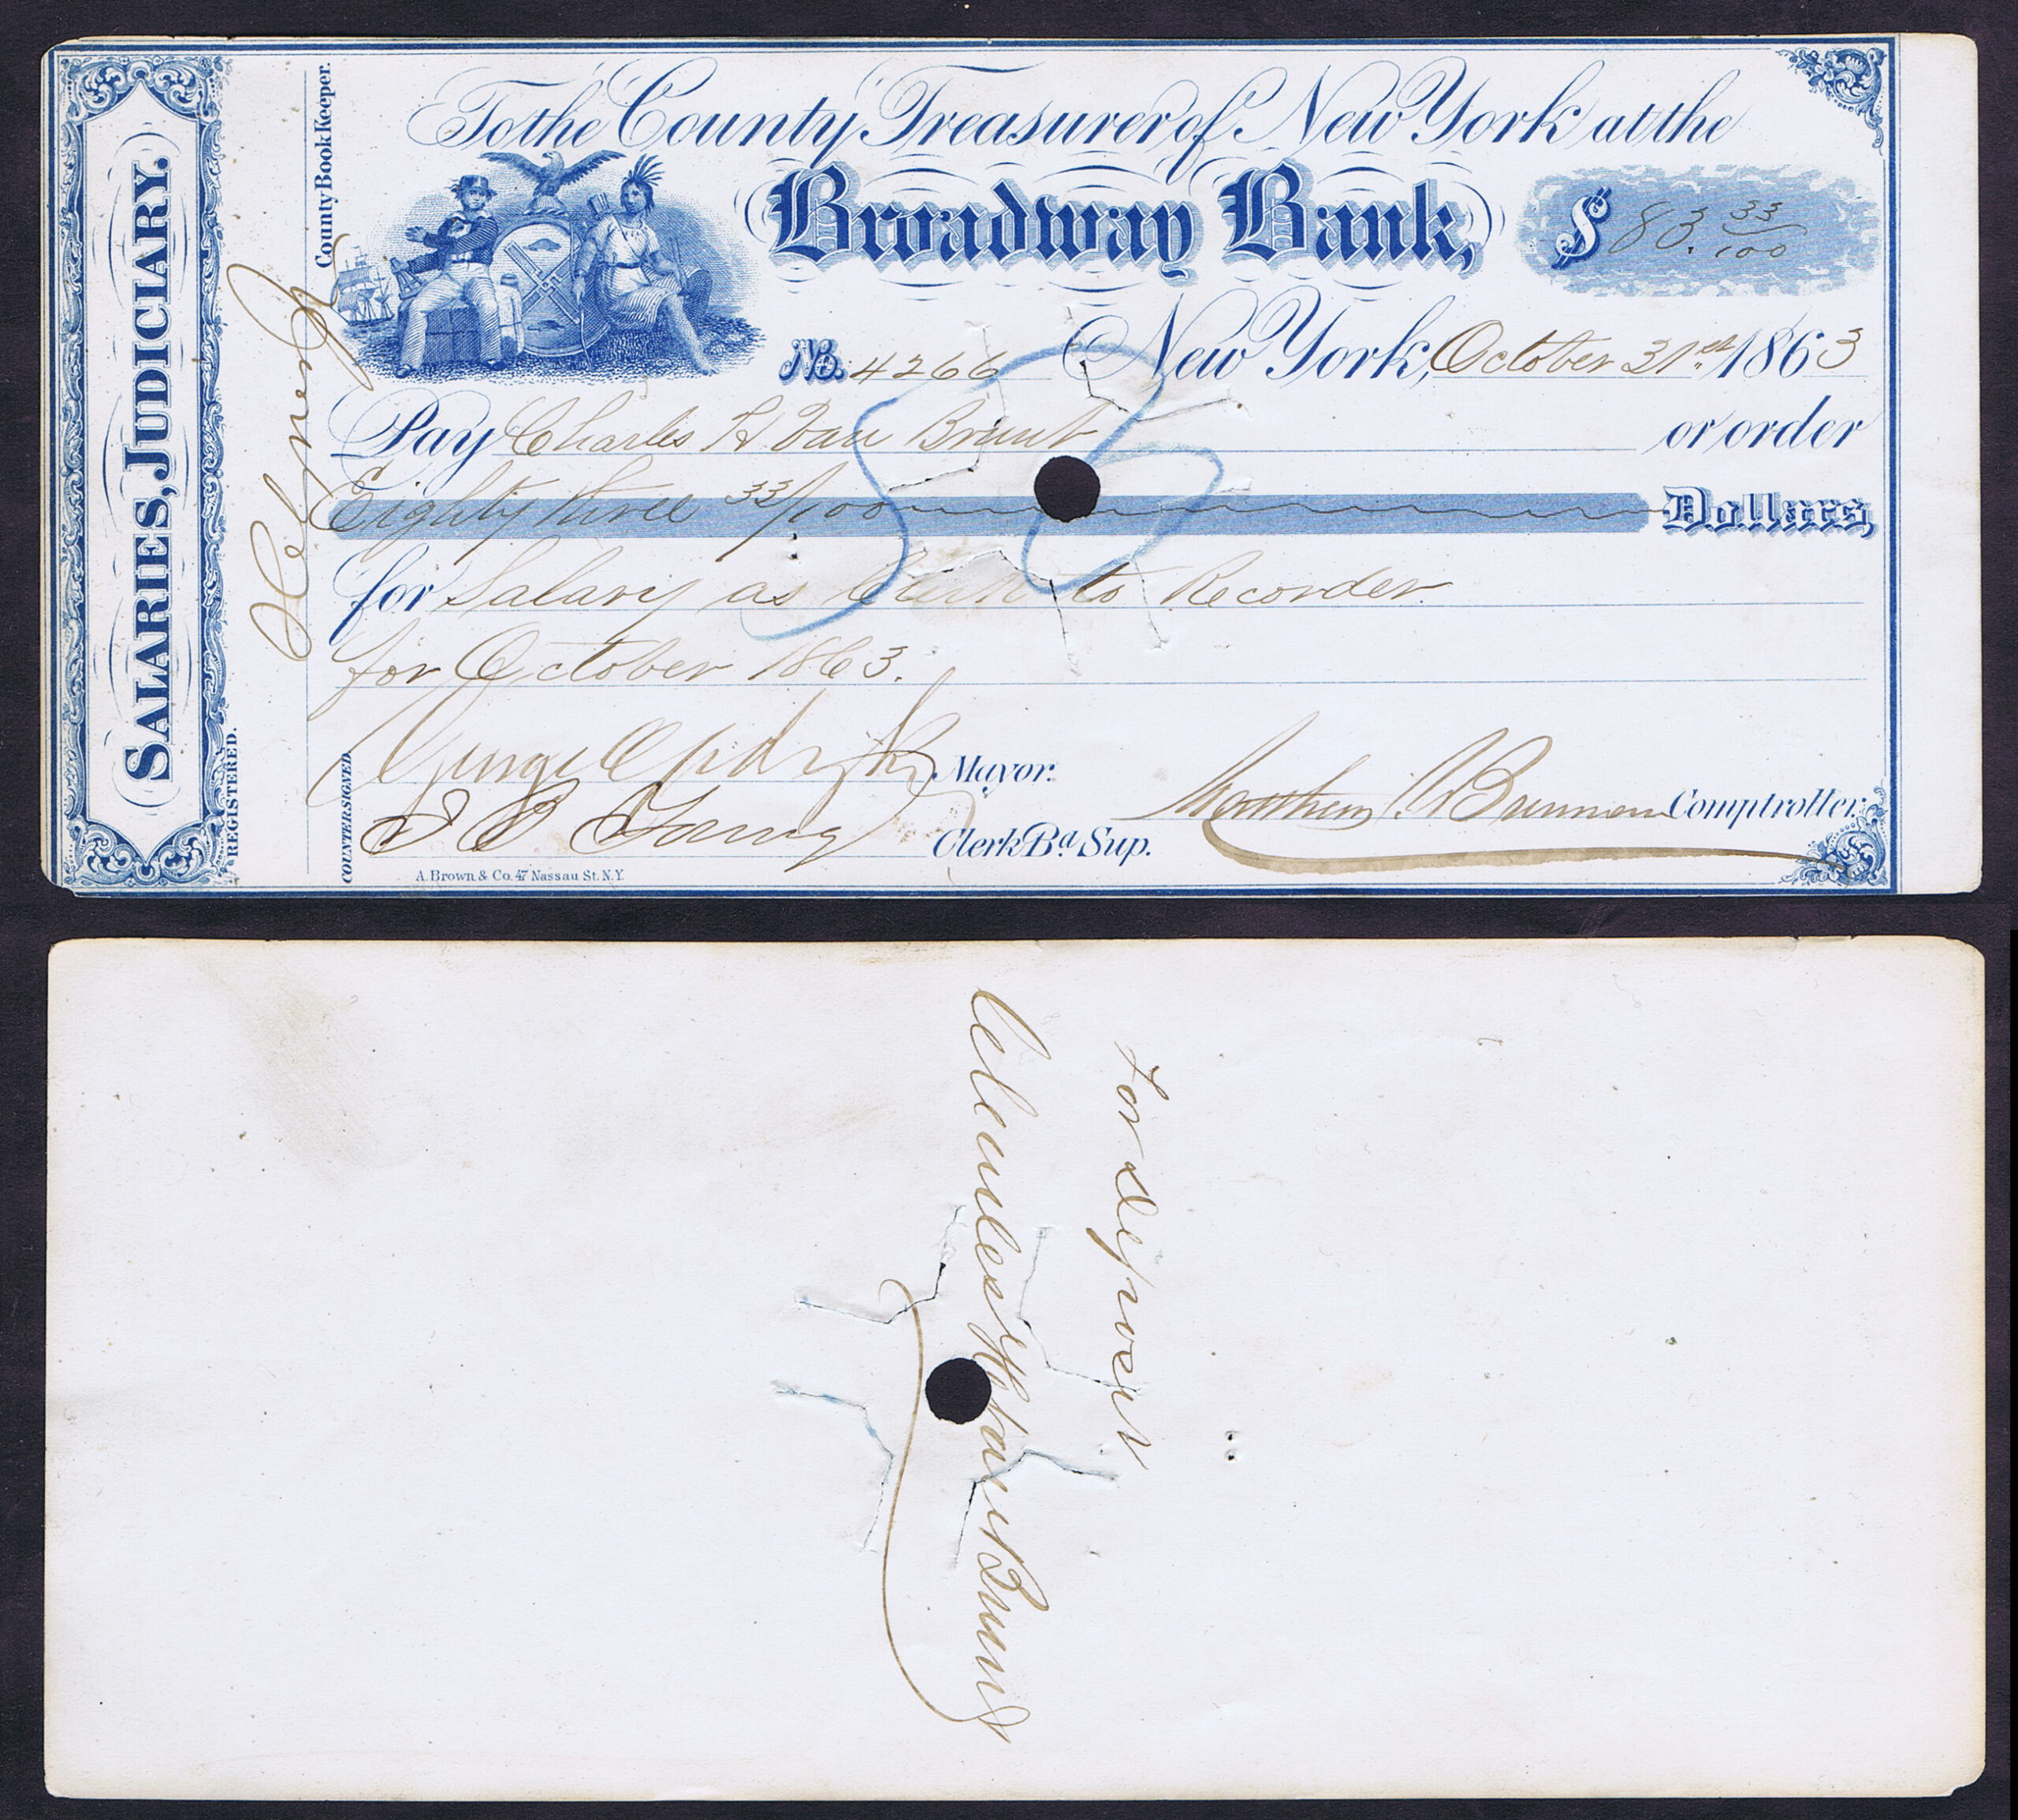 SALARIES, JUDICIARY.
REGISTERED.
County Book Keeper.
To the County Treasurer of New York at the
Broadway Bank,
$ 83. 33/100
No. 4266 New York, October 31st 1863
Pay Charles H Van Brunt or order
Eighty three 33/100 Dollars,
for Salary as Clerk to Recorder
for October 1863.
COUNTERSIGNED
George Opdyke Mayor.
Matthew T Brennan Comptroller.
J B Young Clerk Bd Sup.
A. Brown & Co. 47 Nassau St. N.Y.
For deposit
Charles H Van Brunt